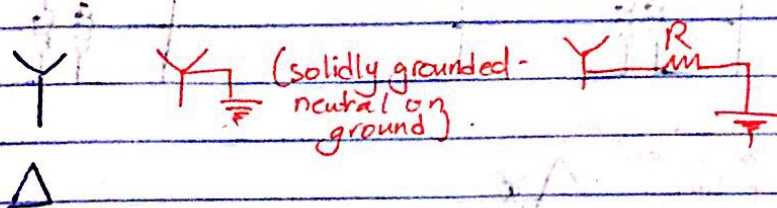 R
(solidly grounded-
neutral on
ground)